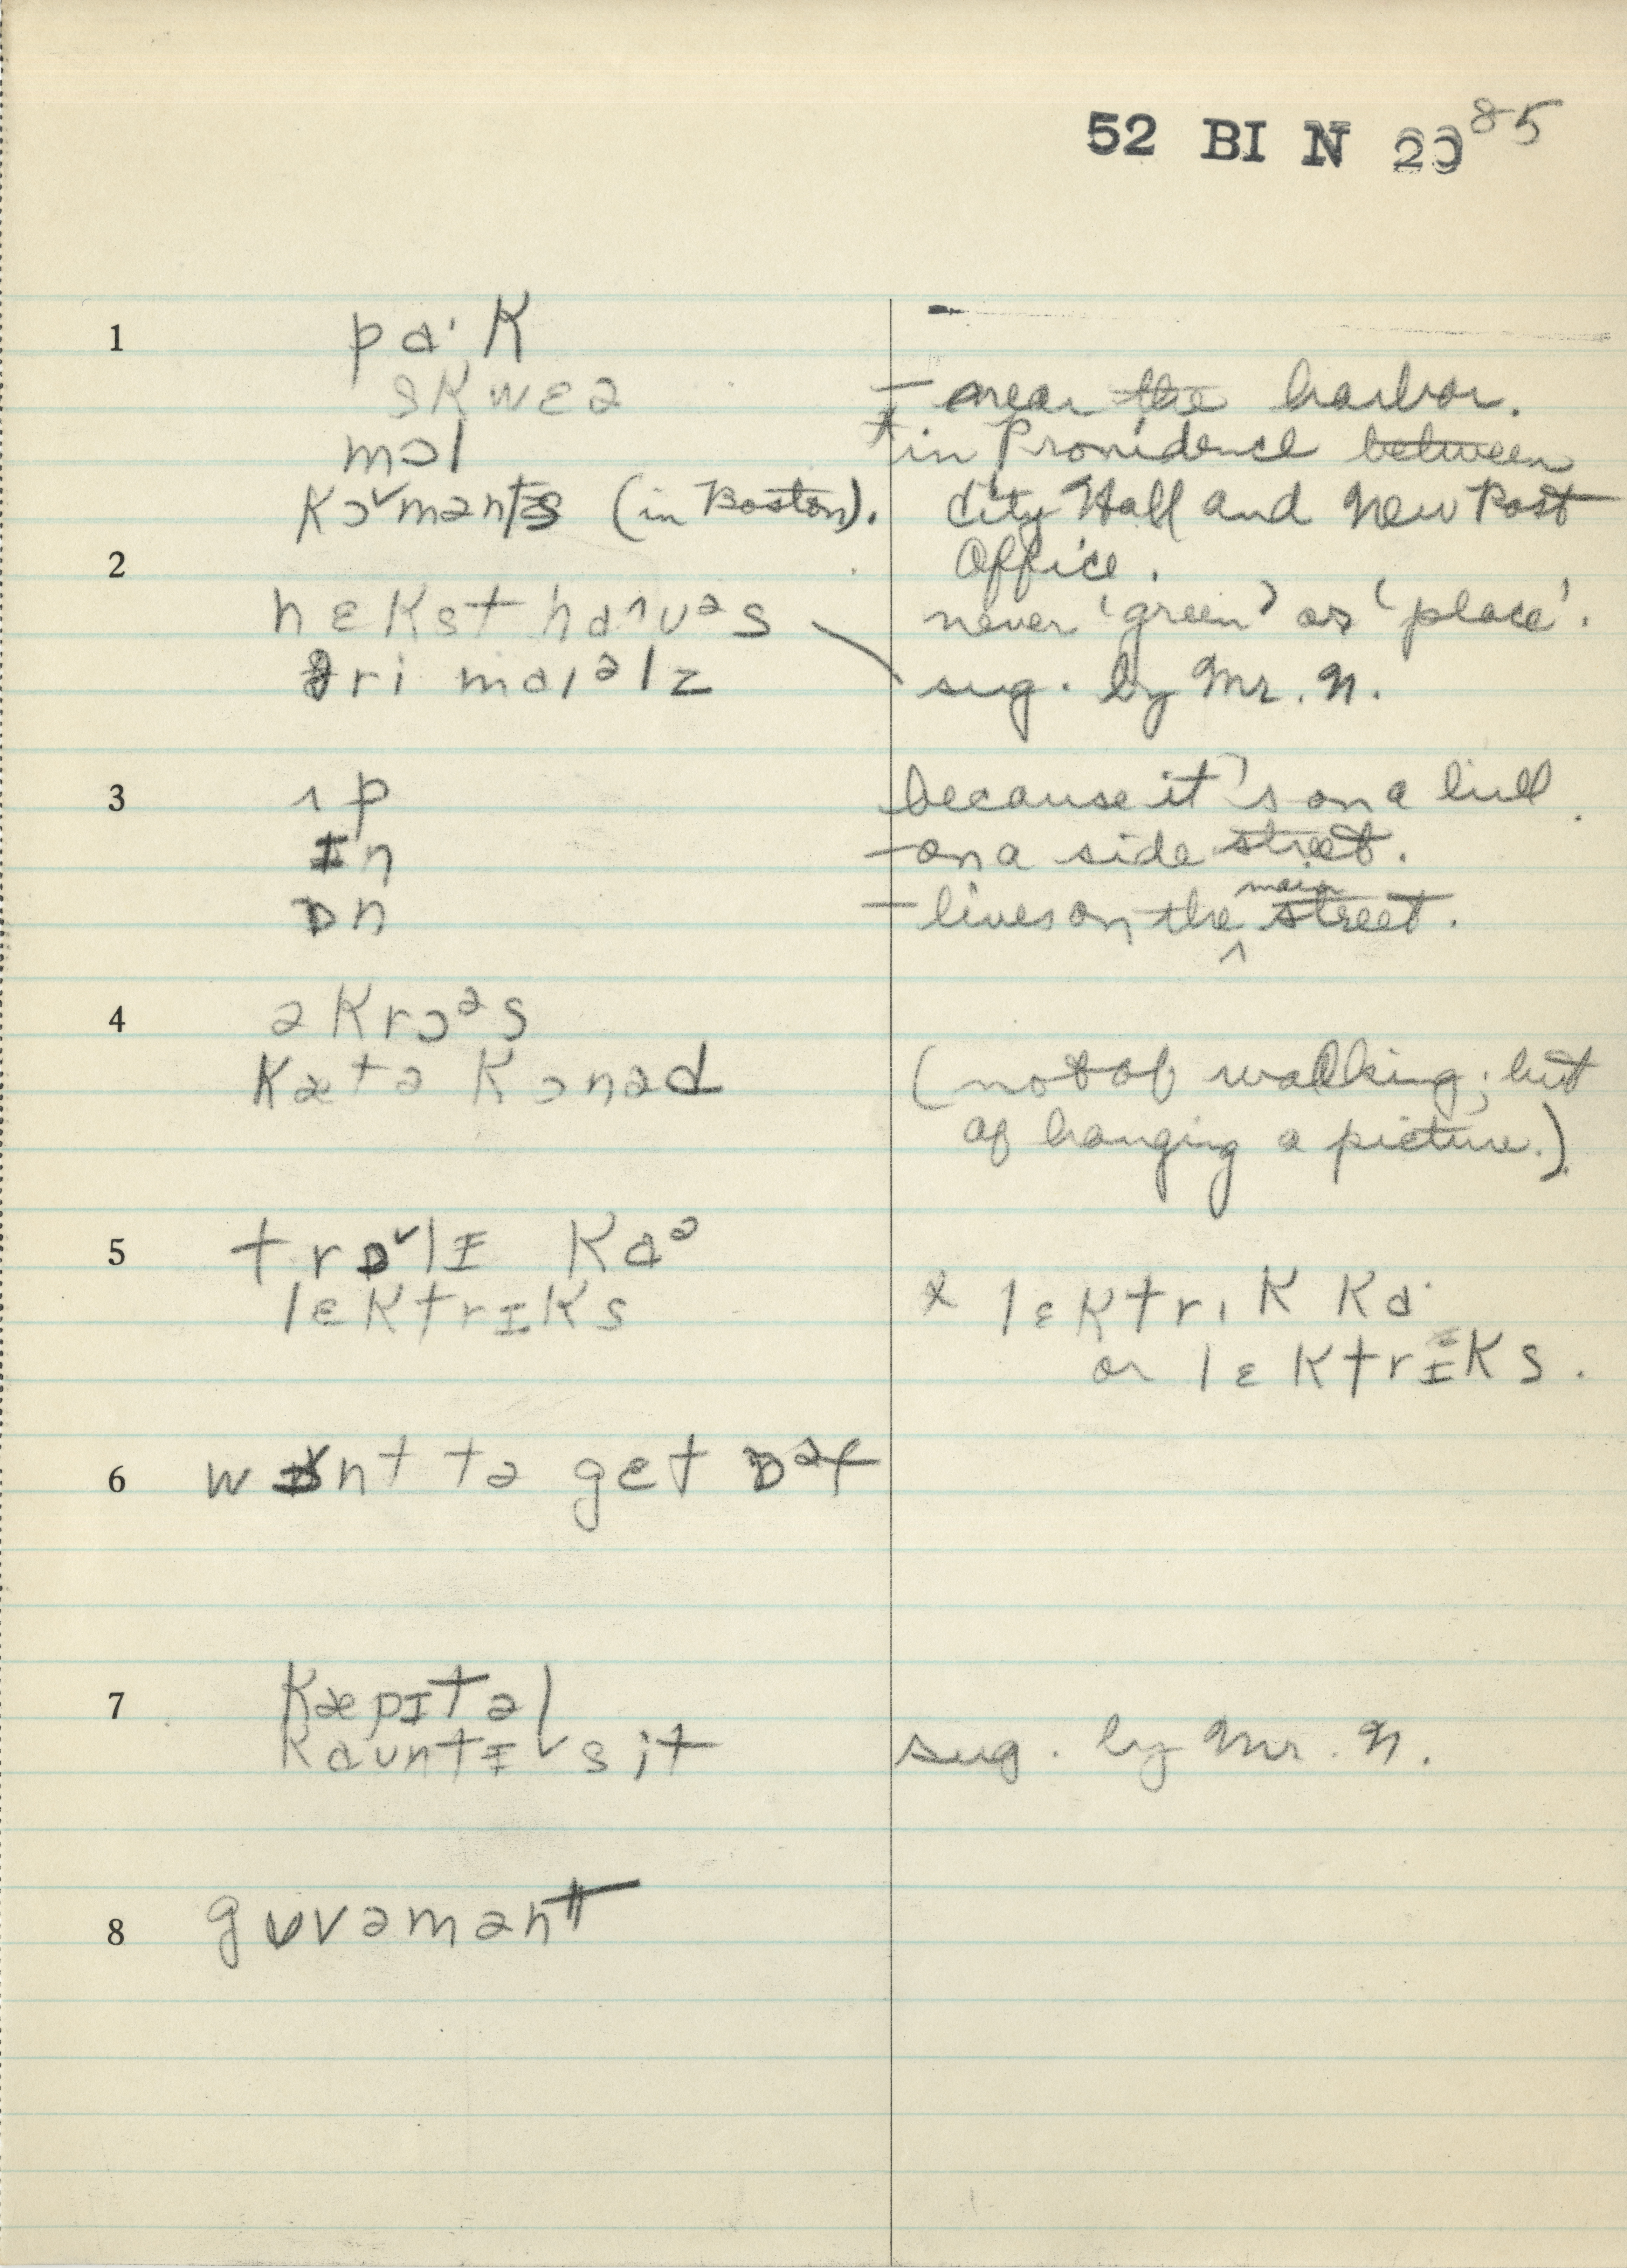 52 BI N 29 85
1 pa· K
sKwɛə — near the harbor.
mɔl * in Providence between
Kɔˇmənts (in Boston). City Hall and New Post
2 Office.
nɛKst haˆʊᵊs never 'green' or 'place'.
θri maɪᵊlz sug. by Mr. N.
3 ʌp because it's on a hill.
ɪn — on a side street.
ɒn — lives on the main street.
4 əKrɔᵊs
Kætə Kɔnəd (not of walking; but
of hanging a picture.)
5 trɒˇlɪ Kaᵊ
lɛKtrɪKs * lɛKtrɪK Ka·
or lɛKtrɪKs.
6 wɒnt tə gɛt ɒᵊf
7 Kæpɪtəl
Kaʊntɪˇ sit sug. by Mr. N.
8 gʊvəmənt